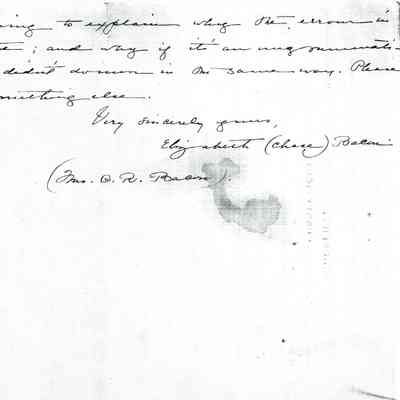 ing to explain why the error in
; and why if it's an
didn't do so in the same way. Please
mething else.
Very sincerely yours,
Elizabeth (Chase) Bacon
(Mrs. G. R. Bacon).